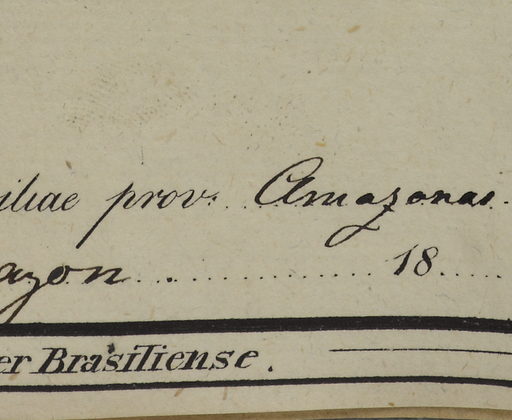 iliae prov. Amazonas.
azon................18.....
er Brasiliense.